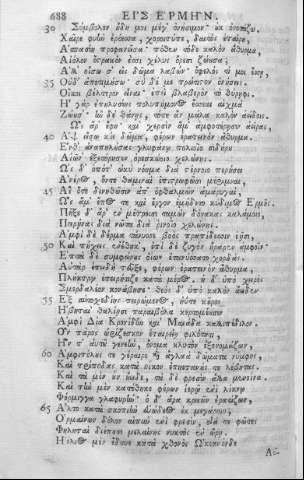 688 ΕΙΣ ΕΡΜΗΝ.
30 Σύμβολον ἤδη μοι μέγ' ὀνήσιμον· οὐκ ὀνοτάζω.
Χαῖρε φυὴν ἐρόεσσα, χοροιτύπε, δαιτὸς ἑταίρη,
Ἀσπασίη προφανεῖσα· πόθεν τόδε καλὸν ἄθυρμα,
Αἰόλον ὄστρακον ἐσσὶ χέλυς ὄρεσι ζώουσα;
Ἀλλ' οἴσω σ' εἰς δῶμα λαβών· ὄφελός τί μοι ἔσσῃ,
35 Οὐδ' ἀποτιμήσω· σὺ δέ με πρώτιστον ὀνήσεις.
Οἴκοι βέλτερον εἶναι· ἐπεὶ βλαβερὸν τὸ θύρηφι.
Ἢ γὰρ ἐπηλυσίης πολυπήμονος ἔσσεαι
Ζώουσ'· ἢν δὲ θάνῃς, τότε ἂν μάλα καλὸν ἀείδοις.
Ὣς ἄρ' ἔφη· καὶ χερσὶν ἅμ' ἀμφοτέρῃσιν ἀείρας,
40 Ἂψ εἴσω κιὲ δῶμα, φέρων ἐρατεινὸν ἄθυρμα.
γλυφάνῳ πολιοῖο σιδήρου
Αἰῶν' ἐξετόρησεν ὀρεσκῴοιο χελώνης.
Ὡς δ' ὁπότ' ὠκὺ νόημα διὰ στέρνοιο περήσει
Ἀνέρος, ὅντε θαμιναὶ ἐπιστρωφῶσι μέριμναι,
45 Αἳ ὅτε δινηθῶσιν ἀπ' ὀφθαλμῶν ἀμαρυγαί,
Ὣς ἅμ' ἔπος τε καὶ ἔργον ἐμήδετο κύδιμος Ἑρμῆς.
Πῆξε δ' ἄρ' ἐν μέτροισι ταμὼν δόνακας καλάμοιο,
Πειρήνας διὰ νῶτα διὰ ῥινοῖο χελώνης.
Ἀμφὶ δὲ δέρμα τάνυσσε βοὸς πραπίδεσσιν ἑῇσι,
50 Καὶ πήχεις ἐνέθηκ', ἐπὶ δὲ ζυγὸν ἤραρεν ἀμφοῖν·
Ἑπτὰ δὲ συμφώνους ὀΐων ἐτανύσσατο χορδάς.
Αὐτὰρ ἐπειδὴ τεῦξε, φέρων ἐρατεινὸν ἄθυρμα,
Πλήκτρῳ ἐπειρήτιζε κατὰ μέρος. ἡ δ' ὑπὸ χειρὸς
Σμερδαλέον κονάβησε· θεὸς δ' ὑπὸ καλὸν ἄειδεν
55 Ἐξ αὐτοσχεδίης πειρώμενος, ἠΰτε κοῦροι
Ἡβηταὶ θαλίῃσι παραιβόλα κερτομέουσιν
Ἀμφὶ Δία Κρονίδην καὶ Μαιάδα καλλιπέδιλον.
Ὃν πάρος ὠρίζεσκον ἑταιρείῃ φιλότητι,
Ἥν τ' αὐτῆ γενεὴν, ὄνομα κλυτὸν ἐξονομάζων,
60 Ἀμφιπόλους τε γέραιρε καὶ ἀγλαὰ δώματα νύμφης,
Καὶ τρίποδας κατὰ οἶκον ἐπηετανούς τε λέβητας.
Καὶ τὰ μὲν οὖν ἤειδε, τὰ δὲ φρεσὶν ἄλλα μενοίνα.
Καὶ τὴν μὲν κατέθηκε φέρων ἱερῷ ἐνὶ λίκνῳ
Φόρμιγγα γλαφυρήν· ὁ δ' ἄρα κρειῶν ἐρατίζων,
65 Ἆλτο κατὰ σκοπιὴν εὐώδεος ἐκ μεγάροιο,
Ὁρμαίνων δόλον αἰπὺν ἐνὶ φρεσὶν, οἷά τε φῶτες
Φηληταὶ διέπουσι μελαίνης νυκτὸς ἐν ὥρῃ.
Ἠέλιος μὲν ἔδυνε κατὰ χθονὸς Ὠκεανόνδε